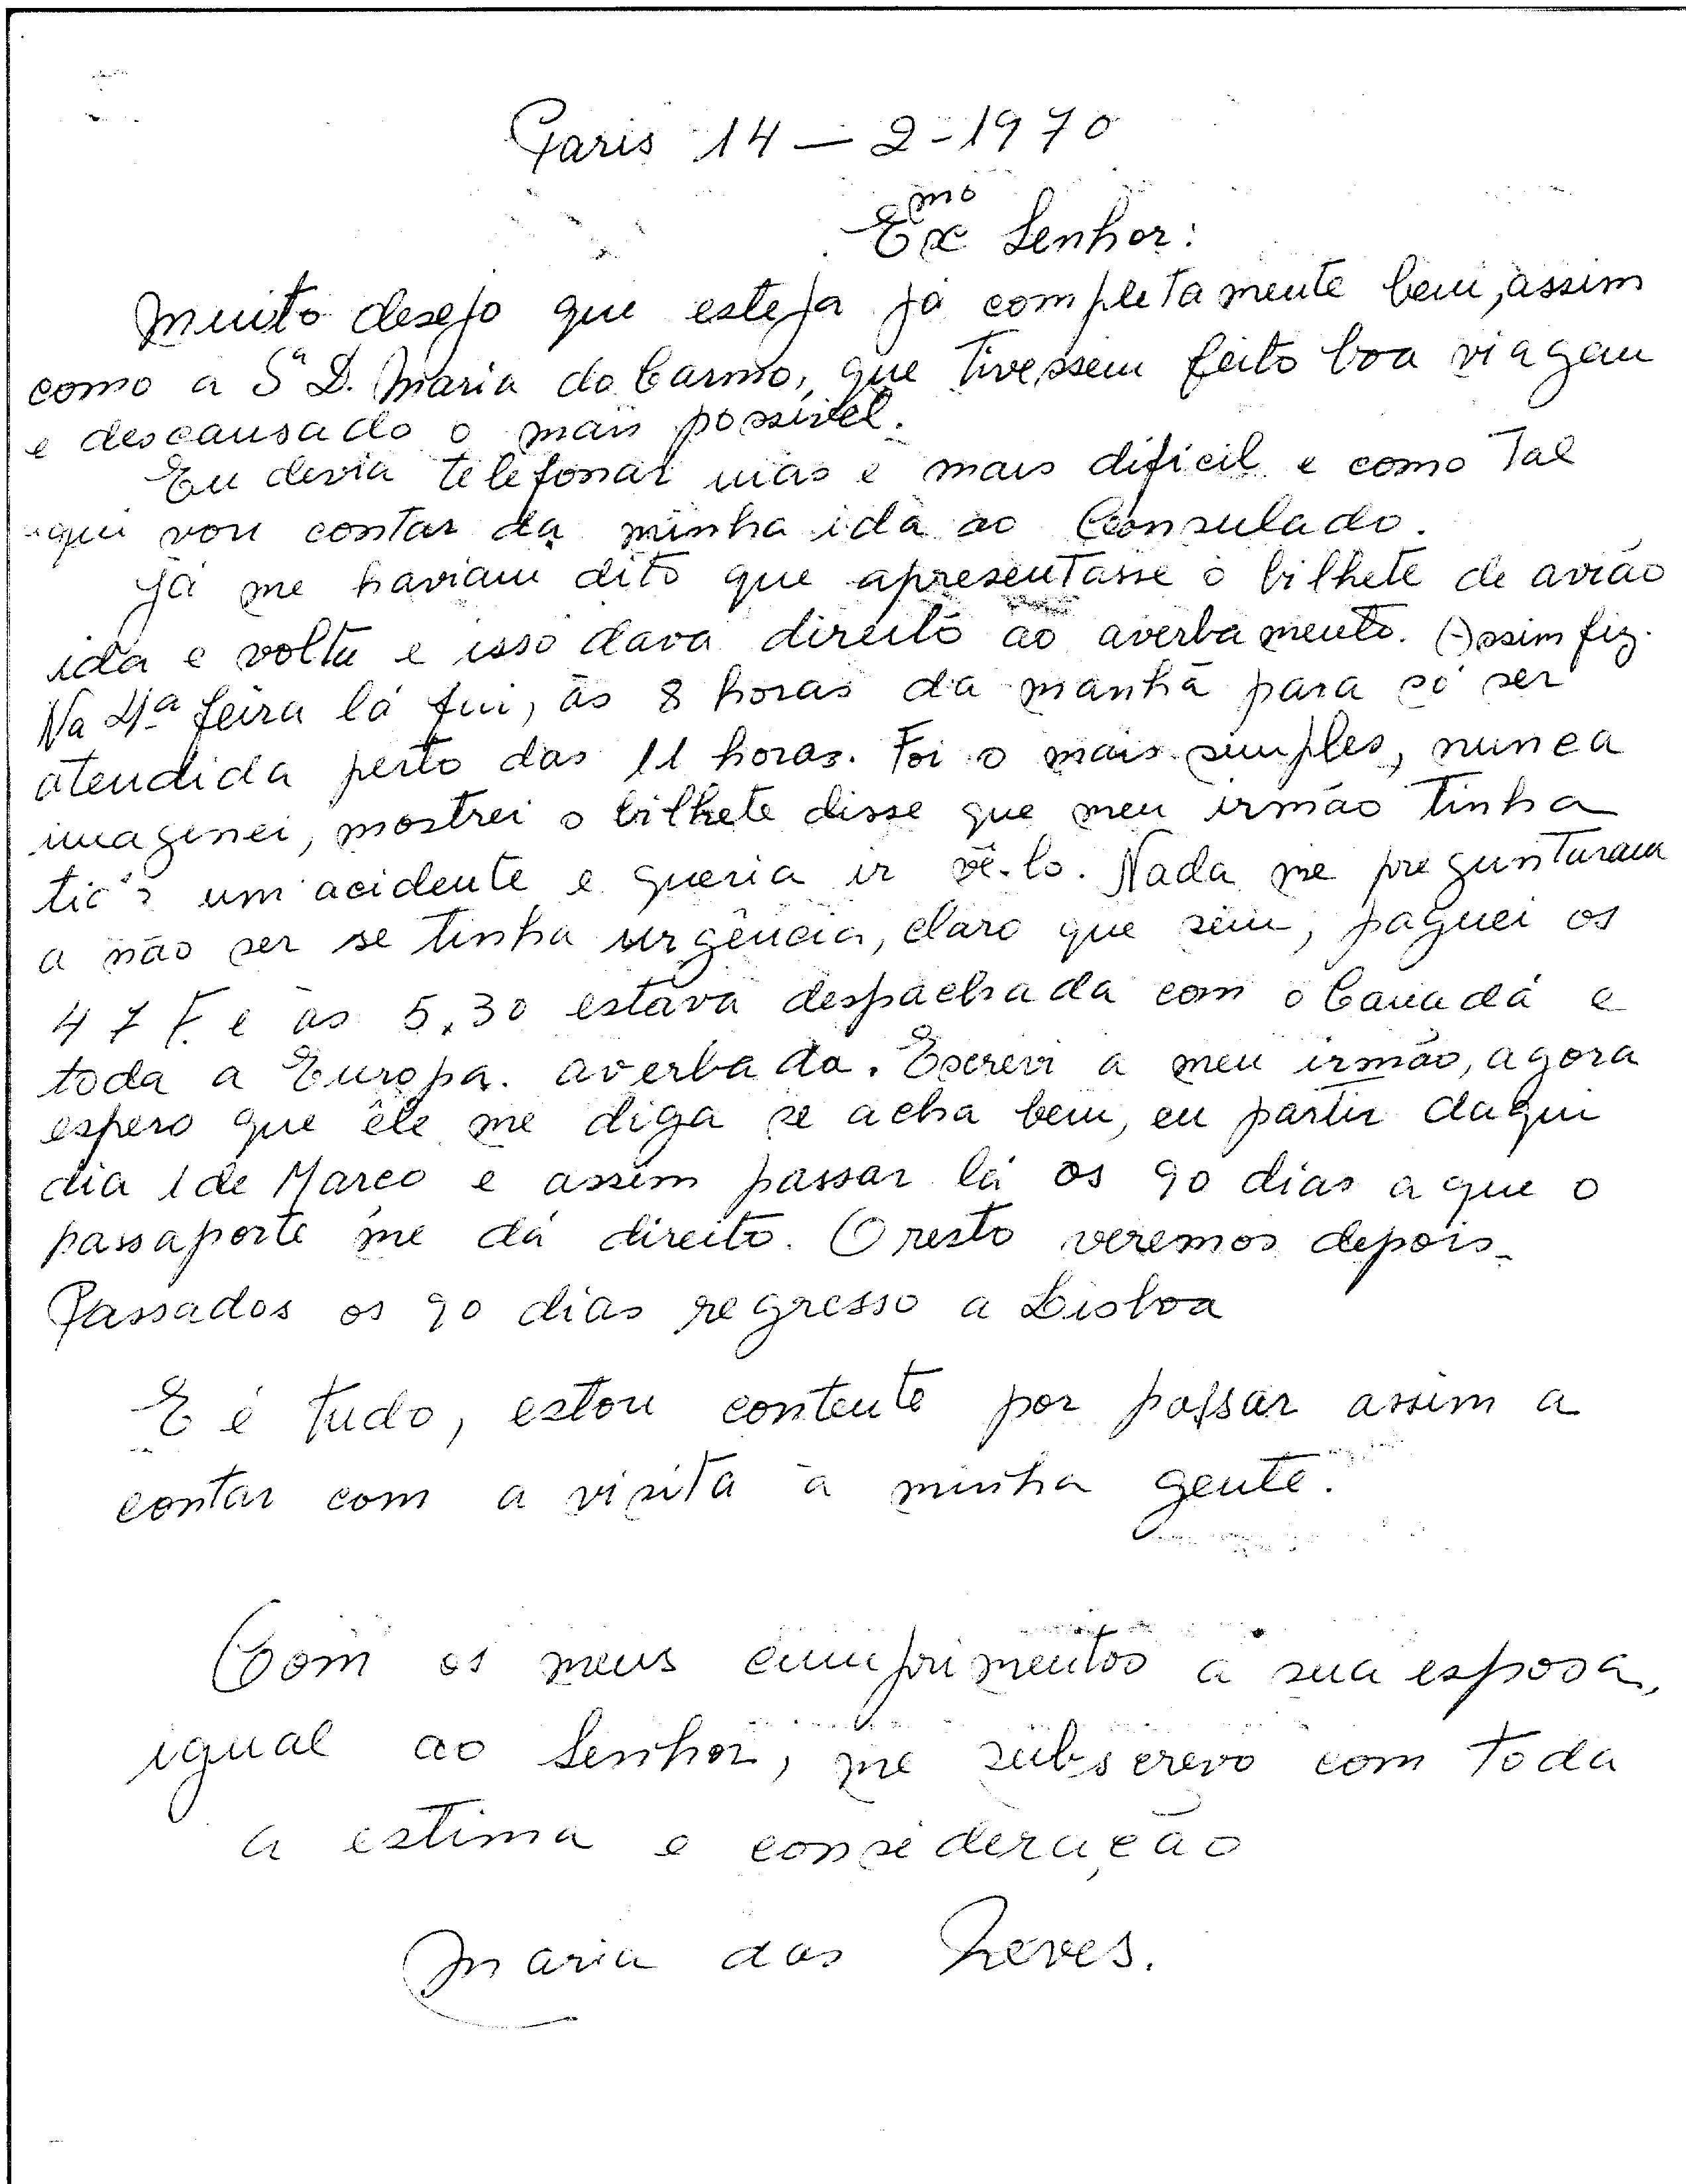 Paris 14 — 2 - 1970
Exmo Senhor:
Muito desejo que esteja já completamente bem, assim
como a Sª D. Maria do Carmo, que tivessem feito boa viagem
e descansado o mais possivel.
Eu devia telefonar mas é mais dificil e como tal
aqui vou contar da minha ida ao Consulado.
Já me haviam dito que apresentasse o bilhete de avião
ida e volta e isso dava direito ao averbamento. Assim fiz.
Na 4ª feira lá fui, às 8 horas da manhã para só ser
atendida perto das 11 horas. Foi o mais simples, nunca
imaginei, mostrei o bilhete disse que meu irmão tinha
um acidente e queria ir vê-lo. Nada me preguntaram
a não ser se tinha urgência, claro que sim, paguei os
47 F. e às 5,30 estava despachada com o Canadá e
toda a Europa. averbada. Escrevi a meu irmão, agora
espero que êle me diga se acha bem, eu partir daqui
dia 1 de Março e assim passar lá os 90 dias a que o
passaporte me dá direito. O resto veremos depois.
Passados os 90 dias regresso a Lisboa
E é tudo, estou contente por passar assim a
contar com a visita à minha gente.
Com os meus cumprimentos a sua esposa,
igual ao Senhor, me subscrevo com toda
a estima e consideração
Maria das Neves.